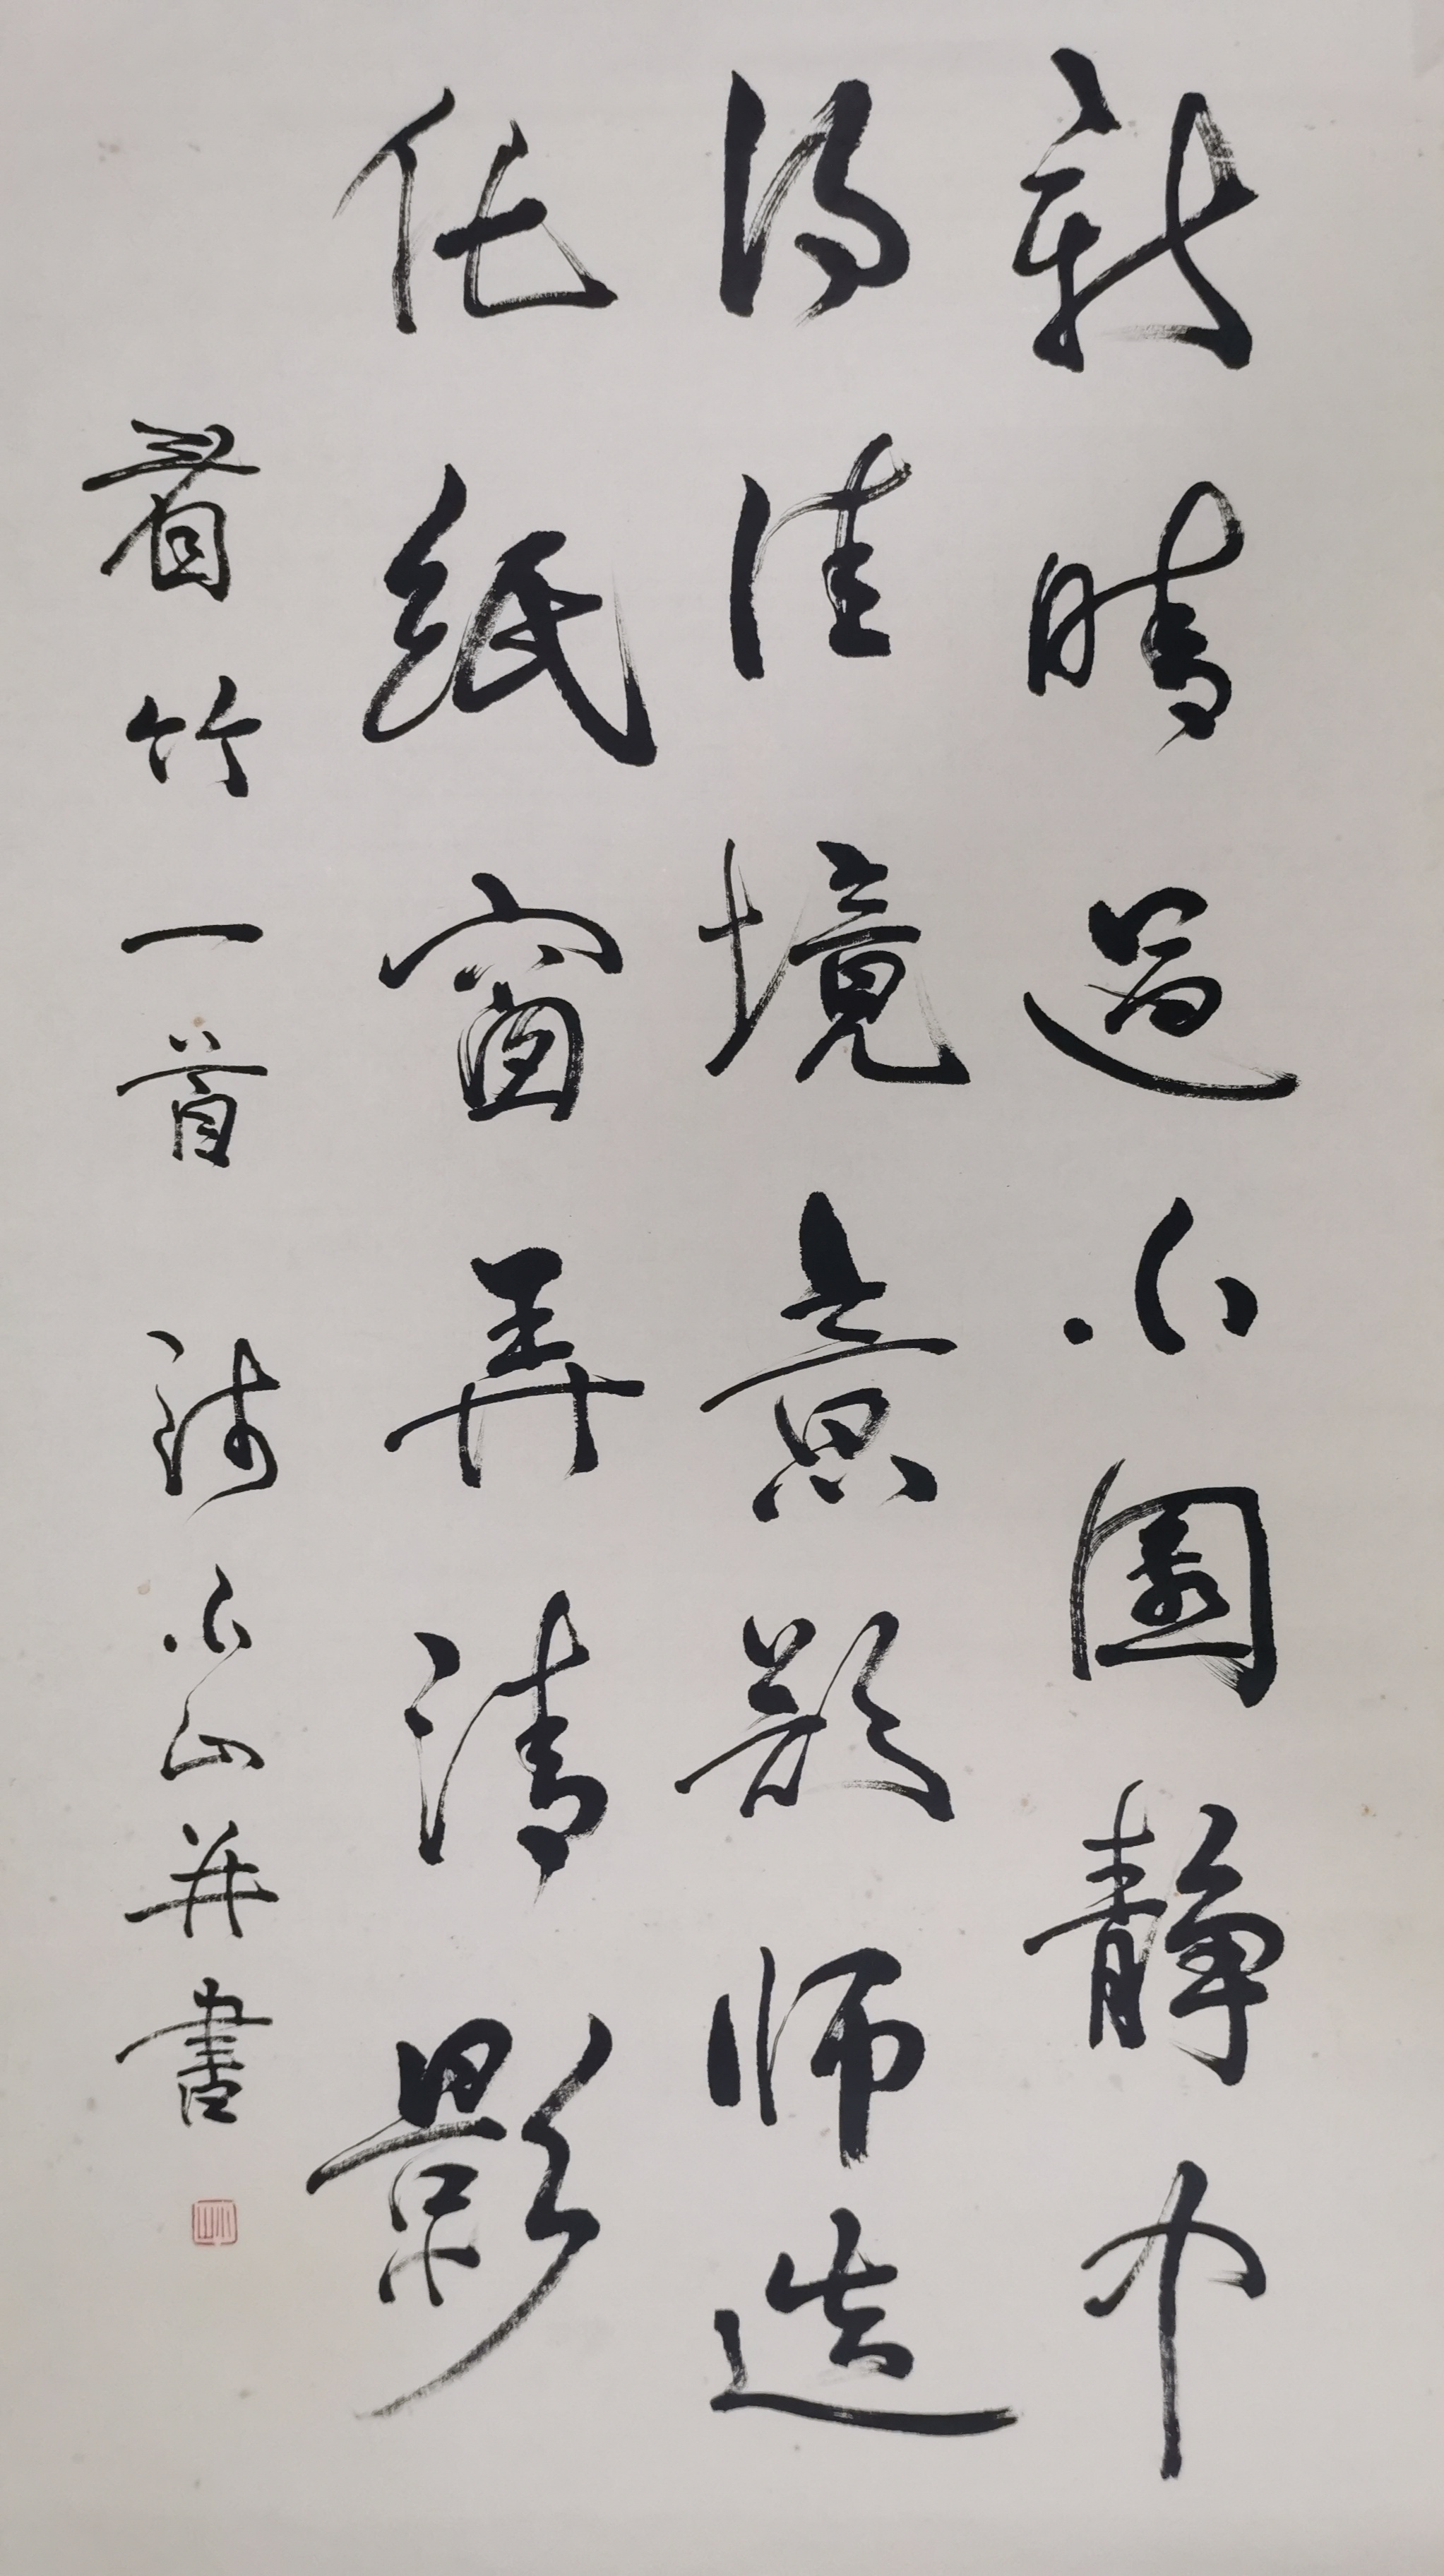 新晴過小園靜中
得佳境意欲師造
化紙窗弄清影
看竹一首詩小山并書
小山